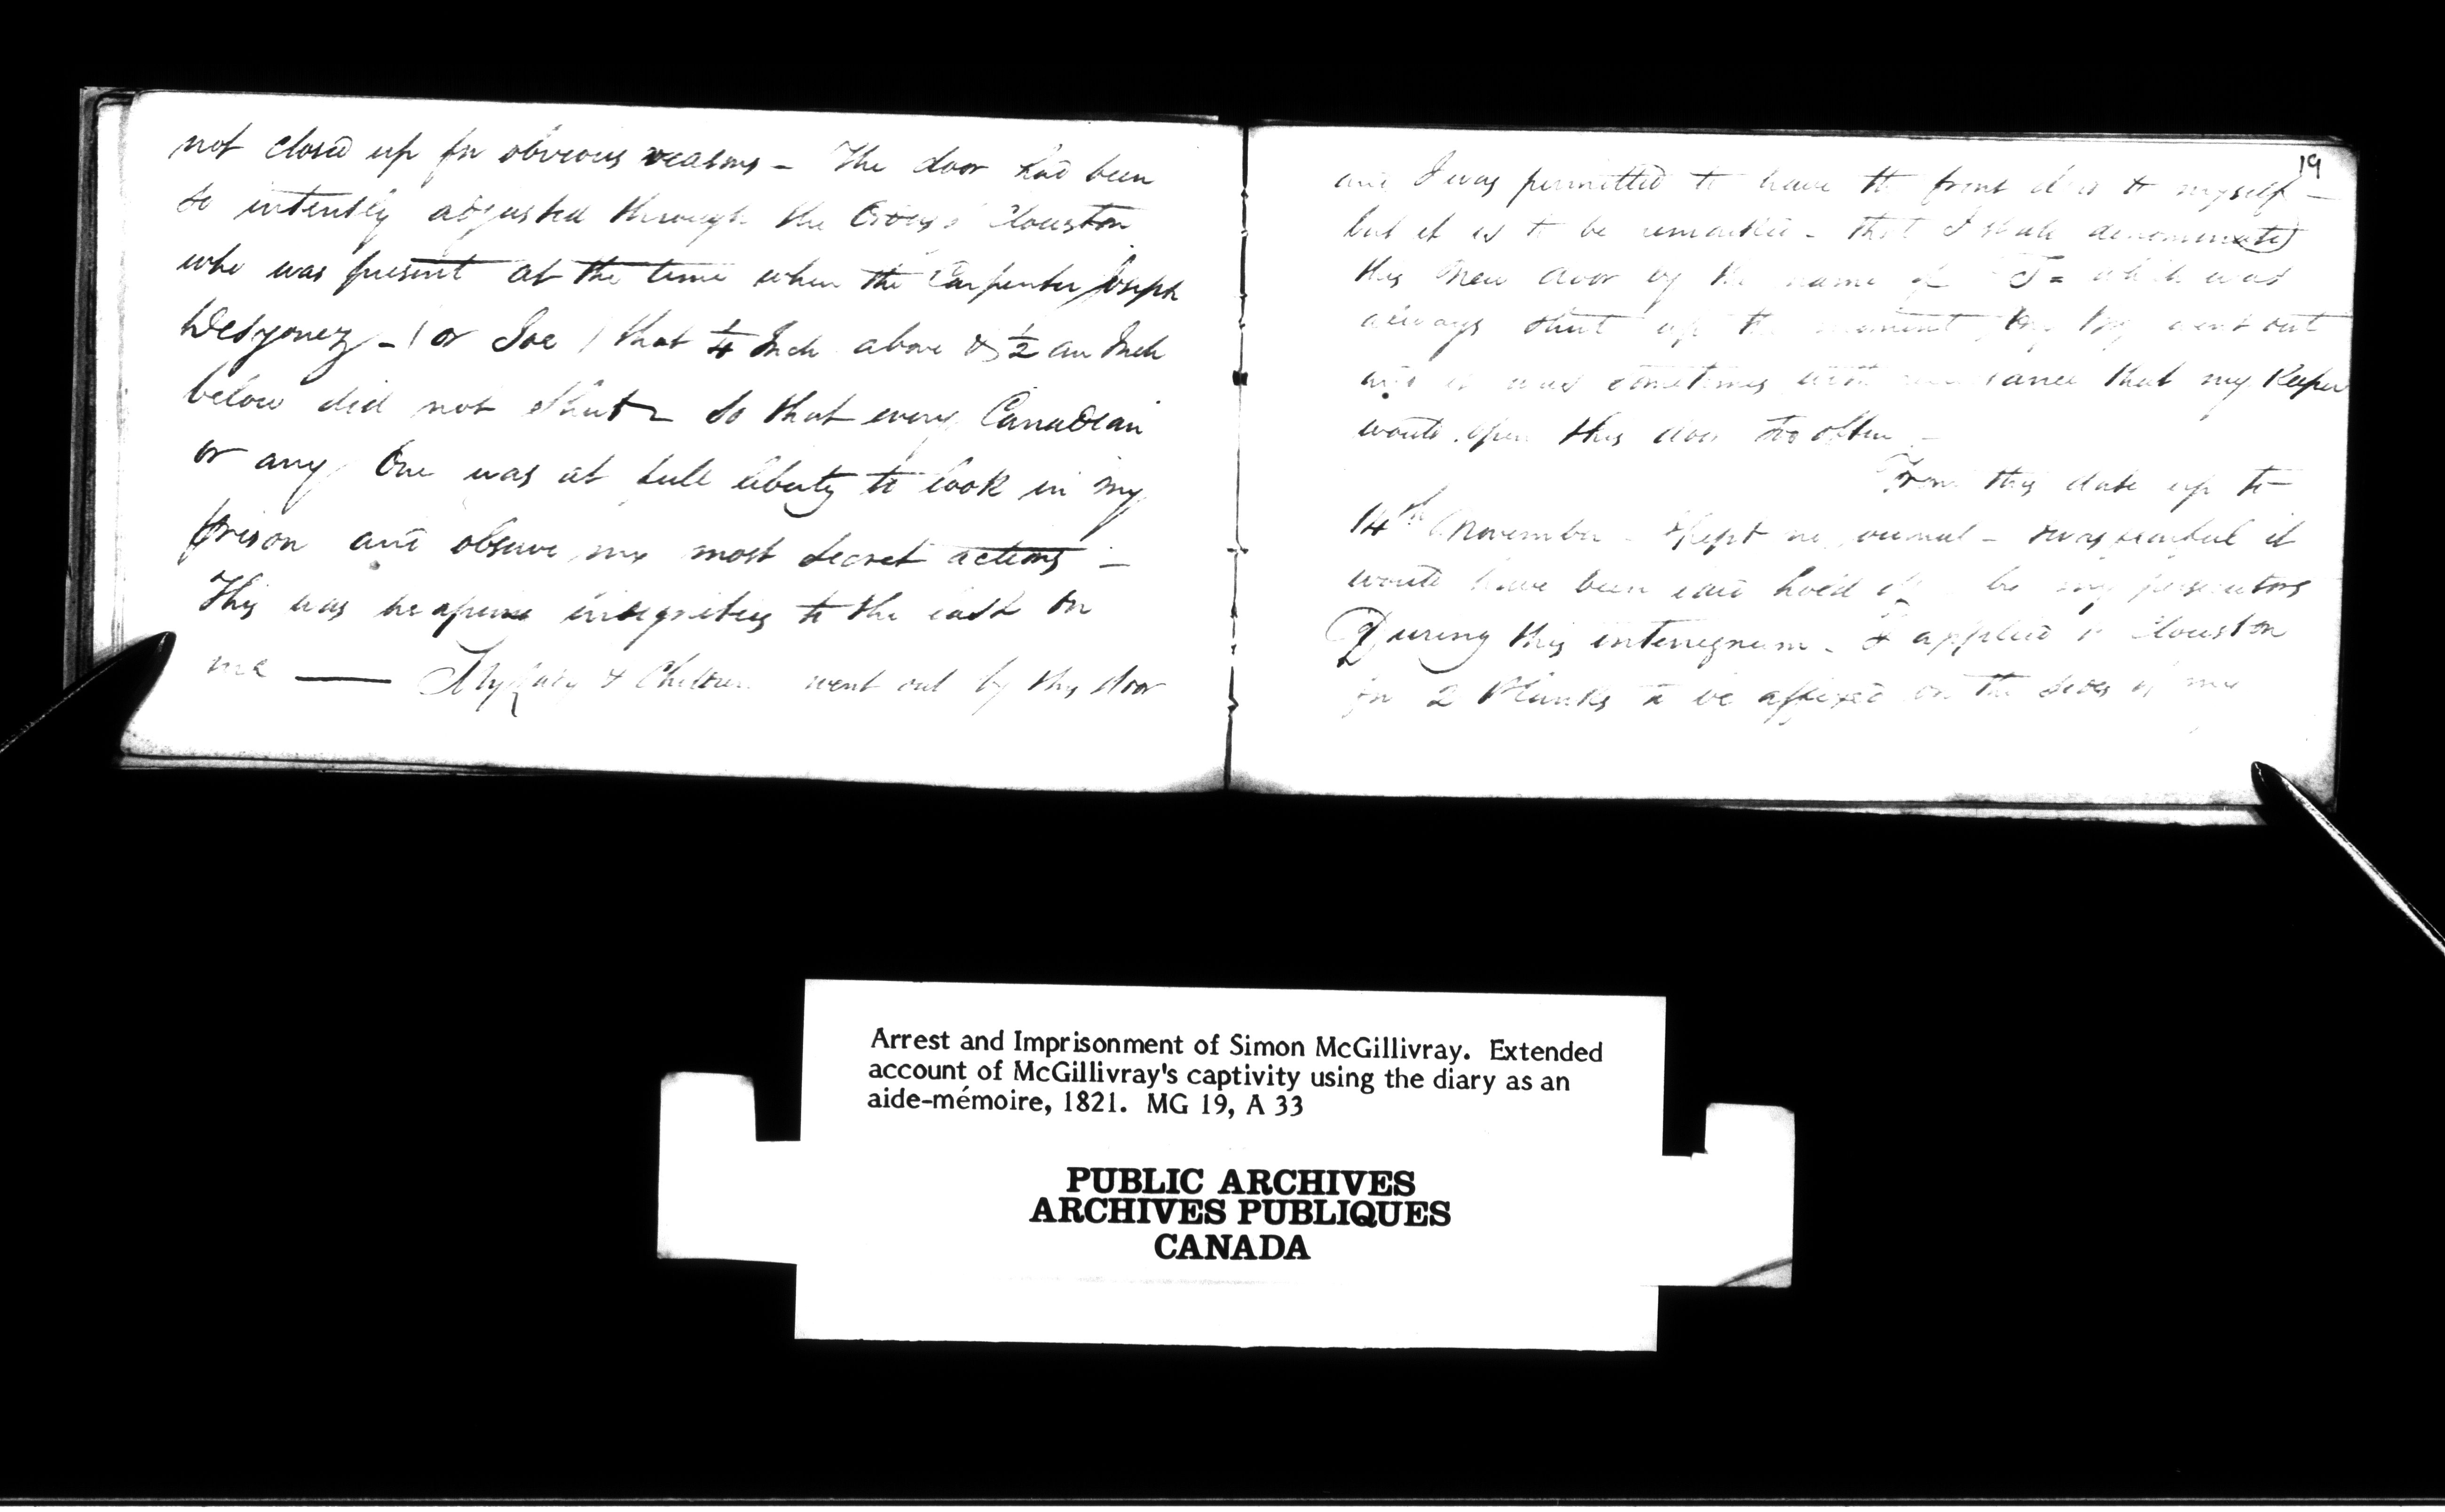 not closed up for obvious reasons - The door had been
so intently adjusted through the Clouston
who was present at the time when the Carpenter Joseph
- ( or Joe ) that 1/4 Inch above & 1/2 an Inch
below did not shut - so that every Canadian
or any One was at full liberty to look in my
prison and observe my most secret actions -
This was heaping indignities to the last on
me — My Lady & Children went out by this door
19
and I was permitted to have the front door to myself -
but it is to be remarked - that I shall denominate
this new door by the name of which was
always shut up the moment they went out
and it was sometimes with that my Keeper
would open this door too often -
From this date up to
14th November - I kept no journal - I was fearful it
would have been laid hold of by my persecutors
During this interregnum - I applied to Clouston
for 2 Planks to be affixed on the sides of my
Arrest and Imprisonment of Simon McGillivray. Extended
account of McGillivray's captivity using the diary as an
aide-mémoire, 1821. MG 19, A 33
PUBLIC ARCHIVES
ARCHIVES PUBLIQUES
CANADA